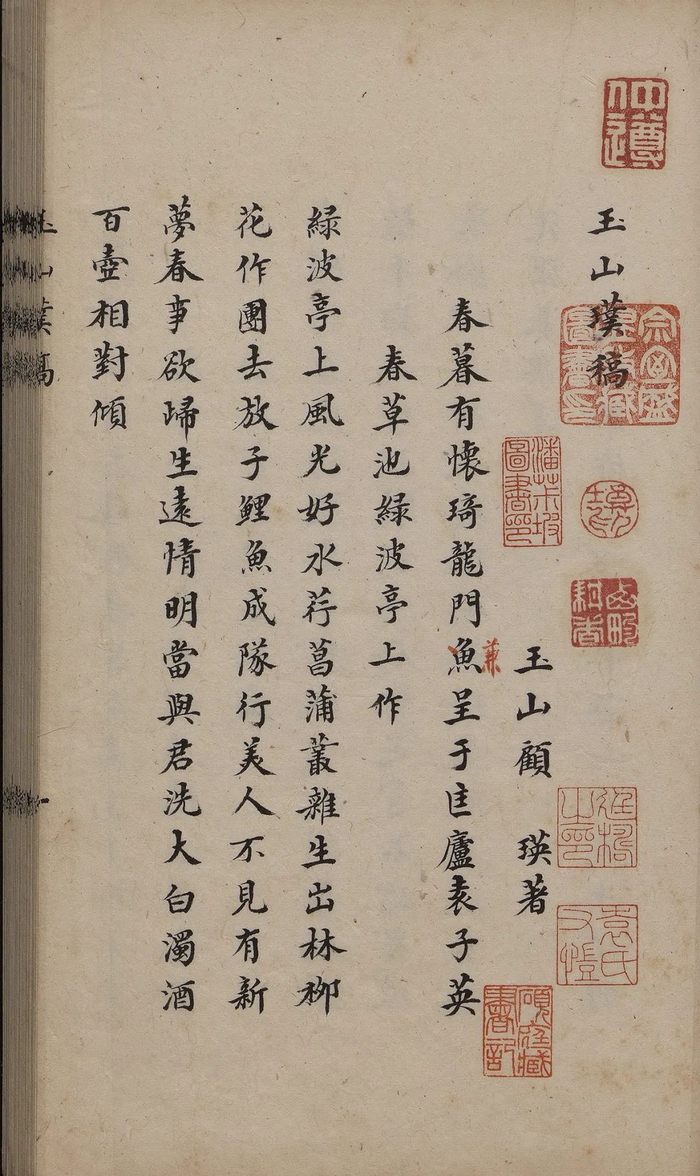 仲遵
玉山璞稿
潘茮坡圖書印
玉山顧 瑛著
袁氏又愷
春暮有懷琦龍門魚呈于匡廬袁子英
兼
春草池緑波亭上作
緑波亭上風光好水荇菖蒲叢雜生出林栁
花作團去放子鯉魚成隊行美人不見有新
夢春事欲歸生遠情明當與君洗大白濁酒
百壺相對傾